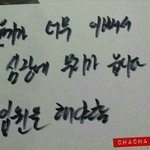 가 너무 이뻐서
심장에 무리가 옵니다
입원을 해야할
CHACHA